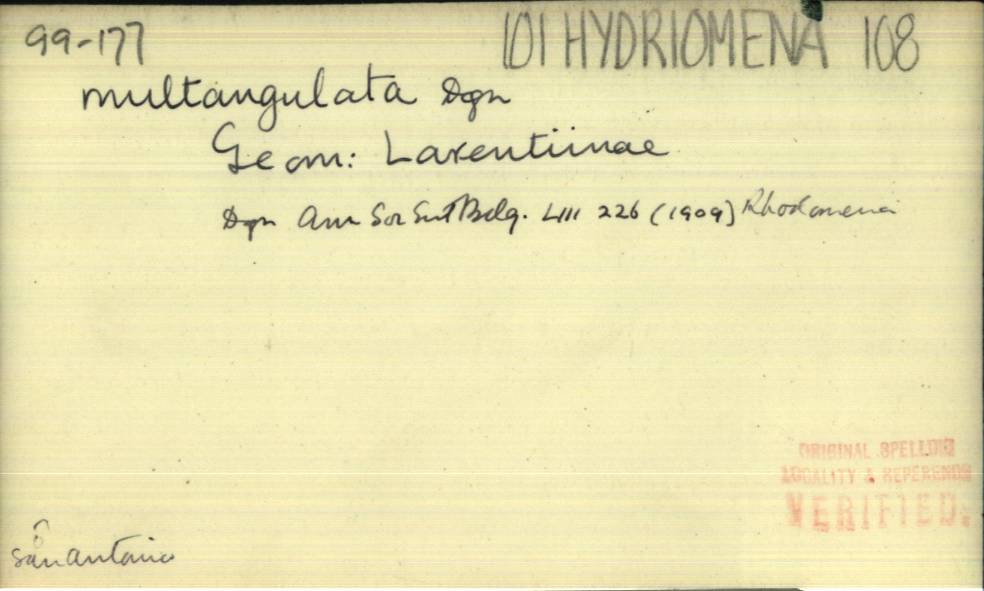 99-177 101 HYDRIOMENA 108
multangulata Dgn
Geom: Larentiinae
Dgn Ann Soc Ent Belg. LIII 226 (1909) Rhodomena
ORIGINAL SPELLING
LOCALITY & REFERENCE
VERIFIED.
San Antonio